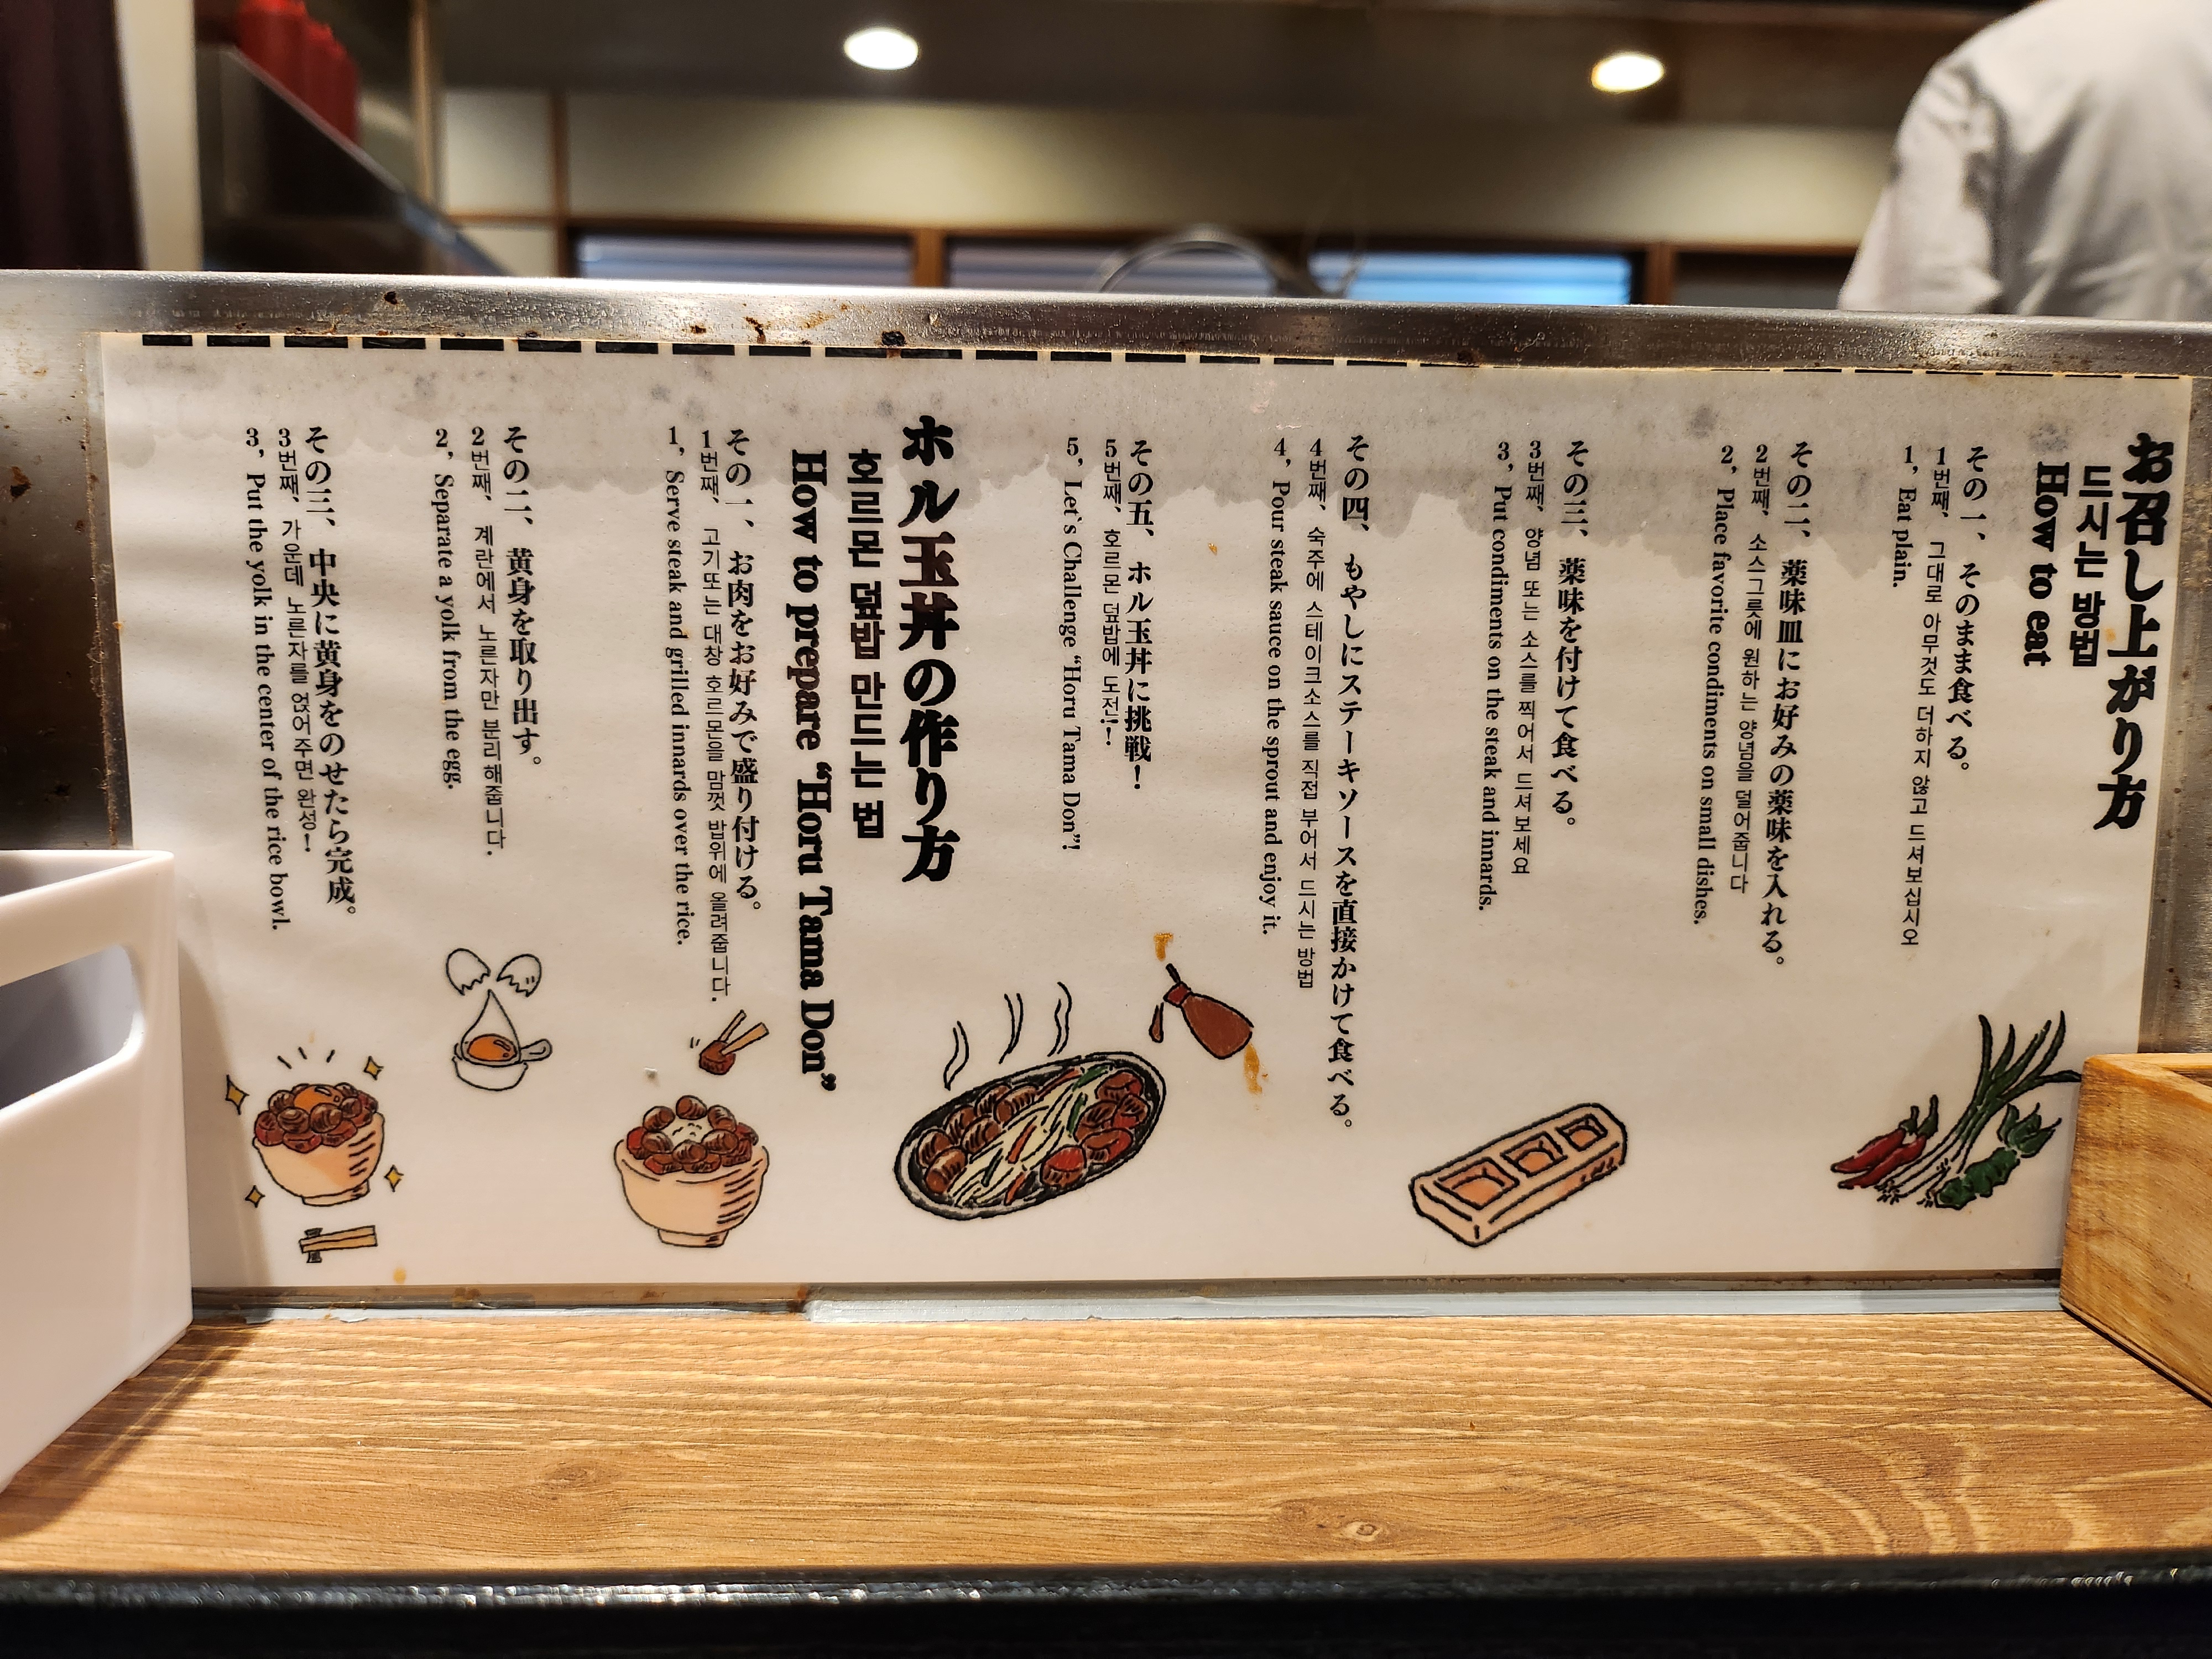 お召し上がり方
드시는 방법
How to eat
その一、そのまま食べる。
1번째, 그대로 아무것도 더하지 않고 드셔보십시오
1, Eat plain.
その二、薬味皿にお好みの薬味を入れる。
2번째, 소스그릇에 원하는 양념을 덜어줍니다
2, Place favorite condiments on small dishes.
その三、薬味を付けて食べる。
3번째, 양념 또는 소스를 찍어서 드셔보세요
3, Put condiments on the steak and innards.
その四、もやしにステーキソースを直接かけて食べる。
4번째, 숙주에 스테이크소스를 직접 부어서 드시는 방법
4, Pour steak sauce on the sprout and enjoy it.
その五、ホル玉丼に挑戦！
5번째, 호르몬 덮밥에 도전!!
5, Let`s Challenge “Horu Tama Don”!
ホル玉丼の作り方
호르몬 덮밥 만드는 법
How to prepare “Horu Tama Don”
その一、お肉をお好みで盛り付ける。
1번째, 고기또는 대창 호르몬을 맘껏 밥위에 올려줍니다.
1, Serve steak and grilled innards over the rice.
その二、黄身を取り出す。
2번째, 계란에서 노른자만 분리해줍니다.
2, Separate a yolk from the egg.
その三、中央に黄身をのせたら完成。
3번째, 가운데 노른자를 얹어주면 완성!
3, Put the yolk in the center of the rice bowl.